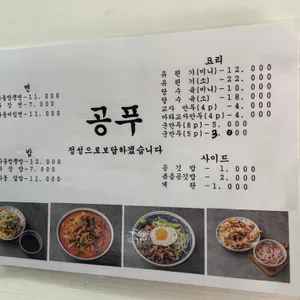 면
-11. 000
-7. 000
-11. 000
밥
-11. 000
-7. 000
-11. 000
공푸
정성으로보답하겠습니다
요리
유 린 기(미니)-12. 000
유 린 기 -22. 000
탕 수 육(미니)-10. 000
탕 수 육 -18. 000
교자 만두(4p) -4. 000
마라교자만두(4p)-4. 000
군만두(8p)-5. 000
군만두(5p)-3. 000
사이드
공 깃 밥 - 1. 000
볶음공깃밥- 2. 000
계 란 - 1. 000